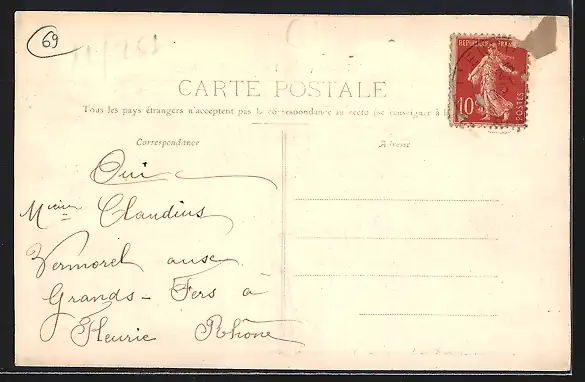 69
CARTE POSTALE
Tous les pays étrangers n'acceptent pas la correspondance au recto (se renseigner à la
REPUBLIQUE FRAN
10
POSTES
Correspondance
Adresse
Oui
Claudius
Vermorel aux
Grands-Fers à
Fleurie Rhône